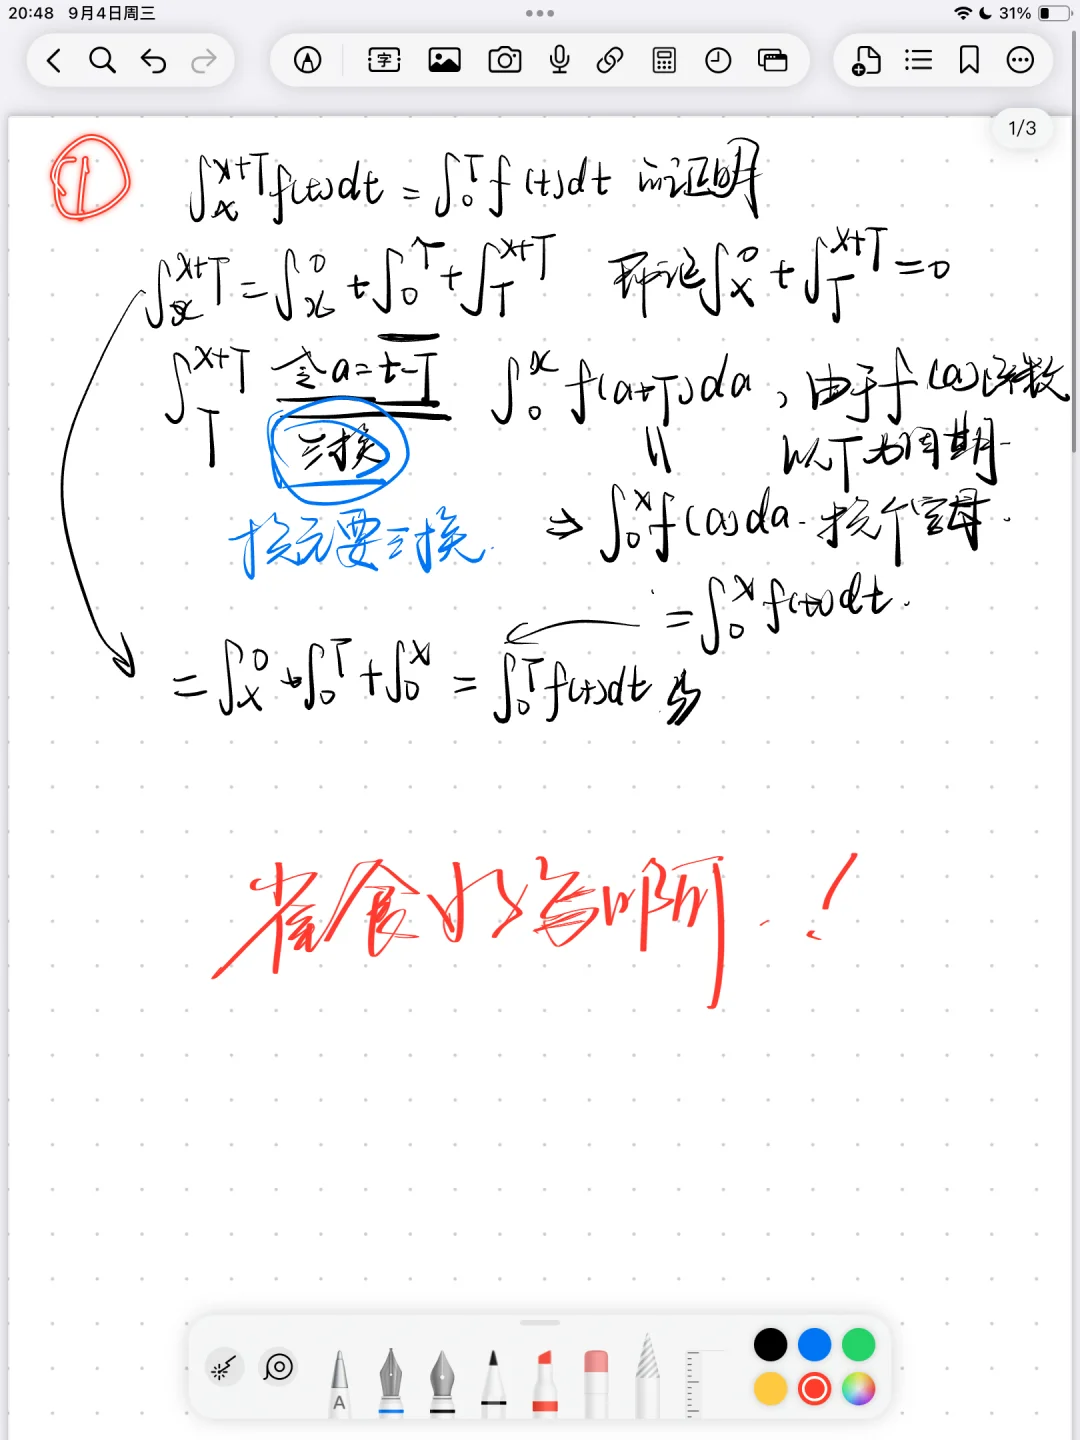 20:48 9月4日周三
31%
字
1/3
① ∫ₓˣ⁺ᵀ f(t)dt = ∫₀ᵀ f(t)dt 的证明
∫ₓˣ⁺ᵀ = ∫ₓ⁰ + ∫₀ᵀ + ∫ᴛˣ⁺ᵀ 即证 ∫ₓ⁰ + ∫ᴛˣ⁺ᵀ = 0
∫ᴛˣ⁺ᵀ 令a=t-T ∫₀ˣ f(a+T)da, 由于f(a)函数
三换 || 以T为周期
换元要三换. ⇒ ∫₀ˣ f(a)da. 换个字母.
= ∫₀ˣ f(t)dt.
= ∫ₓ⁰ + ∫₀ᵀ + ∫₀ˣ = ∫₀ᵀ f(t)dt
啊.!
A